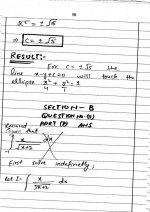 ⇒ C = ± √5
RESULT:-
For C = ± √5 the
line x-y+c=0 will touch the
ellipse x²/4 + y²/1 = 1
SECTION - B
QUESTION NO.
PART ANS
that
∫ x/√3x+2 dx
First solve indefinitely,
Let I = ∫ x/√3x+2 dx